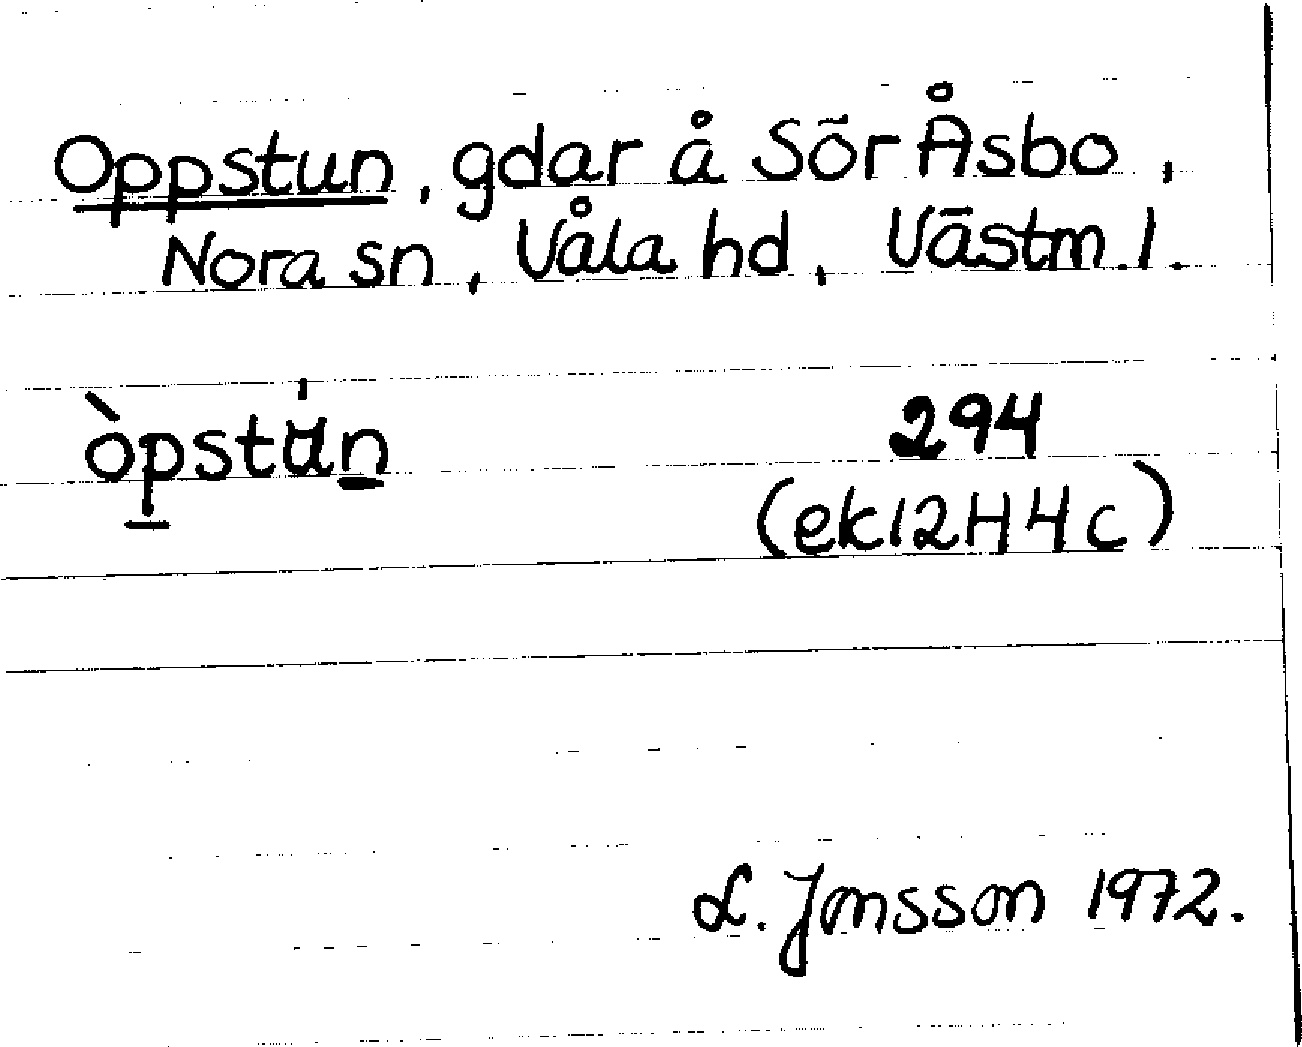 Oppstun, gdar å Sör Åsbo,
Nora sn, Våla hd, Västm. l.
òpstu̇n 294
(ek 12H4c)
L. Jonsson 1972.